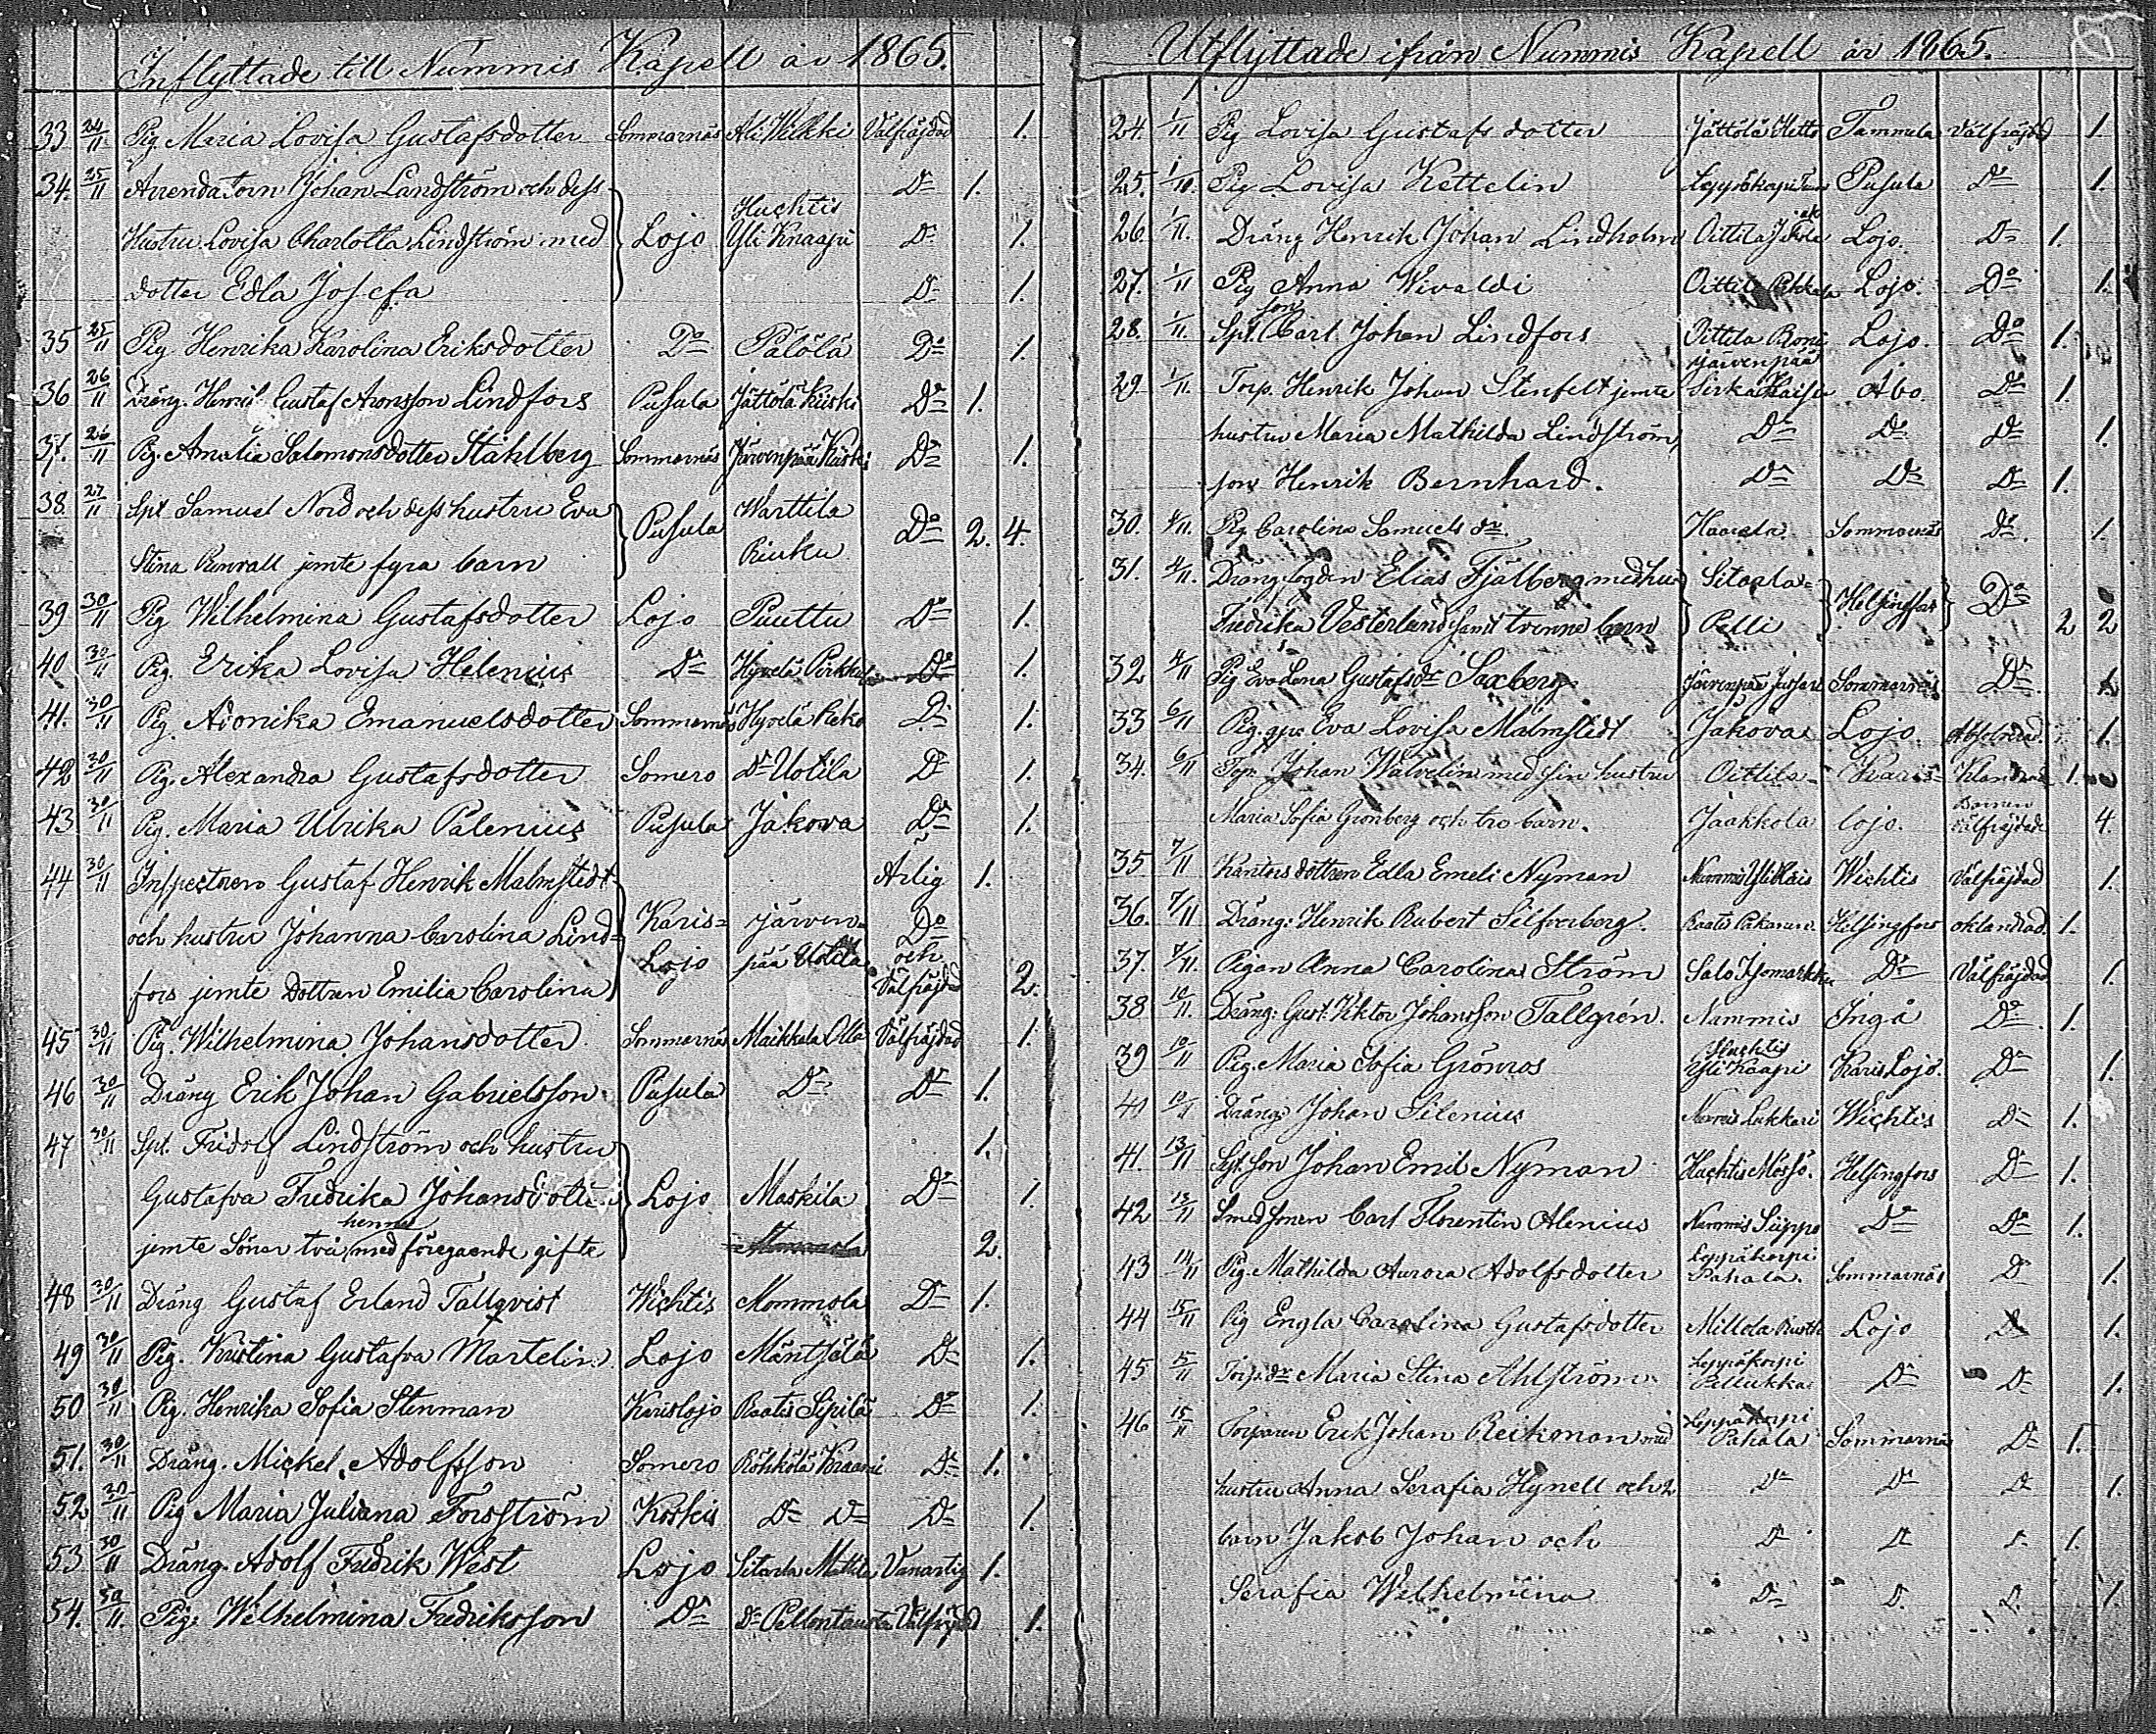 Inflyttade till Nummis Kapell år 1865.
33 24/11 Pig Maria Lovisa Gustafsdotter Sommarnäs Ali Wikki Välfräjdad 1.
34. 25/11 Arrendatorn Johan Landström och dess Do 1.
Hustru Lovisa Charlotta Lindström med Lojo Huchtis Yli Knaapi Do 1.
dotter Edla Josefa Do 1.
35 25/11 Pig Henrika Karolina Eriksdotter Do Pälölä Do 1.
36 26/11 Dräng. Henrik Gustaf Aronsson Lindfors Pusula Jättölä Kiiski Do 1.
37. 26/11 Pig. Amalia Salomonsdotter Ståhlberg Sommarnäs Järvenpää Kiiski Do 1.
38. 27/11 Spt Samuel Nord och dess hustru Eva Pusula Warttila Do 2. 4.
Stina jemte fyra barn Riuku
39 30/11 Pig Wilhelmina Gustafsdotter Lojo Puuttu Do 1.
40 30/11 Pig. Erika Lovisa Helenius Do Hyvelä Pirkkula Do 1.
41. 30/11 Pig. Avonika Emanuelsdotter Sommarnäs Hyvelä Keko Do 1.
42 30/11 Pig. Alexandra Gustafsdotter Somero Do Uotila Do 1.
43 30/11 Pig. Maria Ulrika Palenius Pusula Jakova Do 1.
44 30/11 Inspectoren Gustaf Henrik Malmstedt Ärlig 1.
och hustru Johanna Carolina Lind- Karis- Järven- Do
fors jemte dottren Emilia Carolina Lojo pää Uotila och Välfräjd 2.
45 30/11 Pig. Wilhelmina Johansdotter Sommarnäs Maikkala Olla Välfräjdad 1.
46 30/11 Dräng Erik Johan Gabrielsson Pusula Do Do 1.
47 30/11 Spt. Fridolf Lindström och hustru 1.
Gustafva Fredrika Johansdotter Lojo Maskila Do 1.
jemte söner två hennes med föregaende gifte Mommola 2.
48 30/11 Dräng Gustaf Erland Tallqvist Wichtis Mommola Do 1.
49 30/11 Pig. Kristina Gustafva Martelin Lojo Mäntsälä Do 1.
50 30/11 Pig. Henrika Sofia Stenman Karislojo Raatis Sipilä Do 1.
51. 30/11 Dräng. Mickel Adolfsson Somero Röhkölä Kraami Do 1.
52 30/11 Pig Maria Juliana Forsström Koskis Do Do Do 1.
53 30/11 Dräng. Adolf Fredrik West Lojo Sitarla Mattila Vanartig 1.
54. 30/11. Pig. Wilhelmina Fredriksson Do Do Pellontausta Välfräjdad 1.
Utflyttade ifrån Nummis Kapell år 1865.
24. 1/11 Pig Lovisa Gustafs dotter Jättölä Tammela Välfräjdd 1.
25. 1/11. Pig Lovisa Kettelin Pusula Do 1.
26. 1/11. Dräng Henrik Johan Lindholm Oittila Lojo. Do 1.
27. 1/11 Pig Anna Wivaldi Oittila Pekkala Lojo. Do 1.
28. 1/11. Spt. son Carl Johan Lindfors Oittila Lojo. Do 1.
29. 1/11. Torp. Henrik Johan Stenfelt jemte Järvenpää Åbo. Do 1.
hustru Maria Mathilda Lindström Do Do Do 1.
son Henrik Bernhard. Do Do Do 1.
30. 4/11. Pig Carolina Samuels dr. Haarla Sommarnäs Do. 1.
31. 4/11. Drängfogden Elias Fjälberg med hu Sitarla- Helsingfors Do
Fredrika Vesterlund samt trenne barn Pelli 2 2
32 4/11 Pig Eva Lena Gustafsdr Saxberg Järvenpää Jussari Sommarnäs Do. 1.
33 6/11 Pig. Eva Lovisa Malmstedt Jakova Lojo 1.
34. 6/11 Torp Johan Wålvelin med sin hustru Oittila- Karis- Klandrad 1.
Maria Sofia Grönberg och tre barn. Jaakkola Lojo. Barnen Välfräjdade 4.
35 7/11 Kantors dottren Edla Emeli Nyman Nummis Wichtis Välfräjdad 1.
36. 7/11 Dräng. Henrik Robert Silfverberg. Raatis Pakanen Helsingfors oklandrad. 1.
37. 7/11. Pigan Anna Carolina Ström Salo Do Välfräjdad 1.
38 10/11. Dräng. Gust. Viktor Johansson Tallgrén. Nummis Ingå Do. 1.
39 10/11 Pig. Maria Sofia Grönros Huchtis Yli Knaapi Karis Lojo. Do 1.
41 10/11 Dräng. Johan Silenius Nummis Lukkari Wichtis Do 1.
41. 13/11 Spt. son Johan Emil Nyman Huchtis Helsingfors Do 1.
42 13/11 Smed sonen Carl Florentin Alenius Nummis Seppo Do Do 1.
43 14/11 Pig. Mathilda Aurora Adolfsdotter Leppäkorpi Pahala Sommarnäs Do 1.
44 15/11 Pig Engla Carolina Gustafsdotter Millola Lojo Do 1.
45 15/11 Torp. dr Maria Stina Ahlström Leppäkorpi Pellukka Do Do 1.
46 15/11 Torparen Erik Johan Reikman med Leppäkorpi Pahala Sommarnä Do 1.
hustru Anna Serafia Hynell och 2 Do Do Do 1.
barn Jakob Johan och Do Do Do 1.
Serafia Wilhelmina Do Do Do 1.